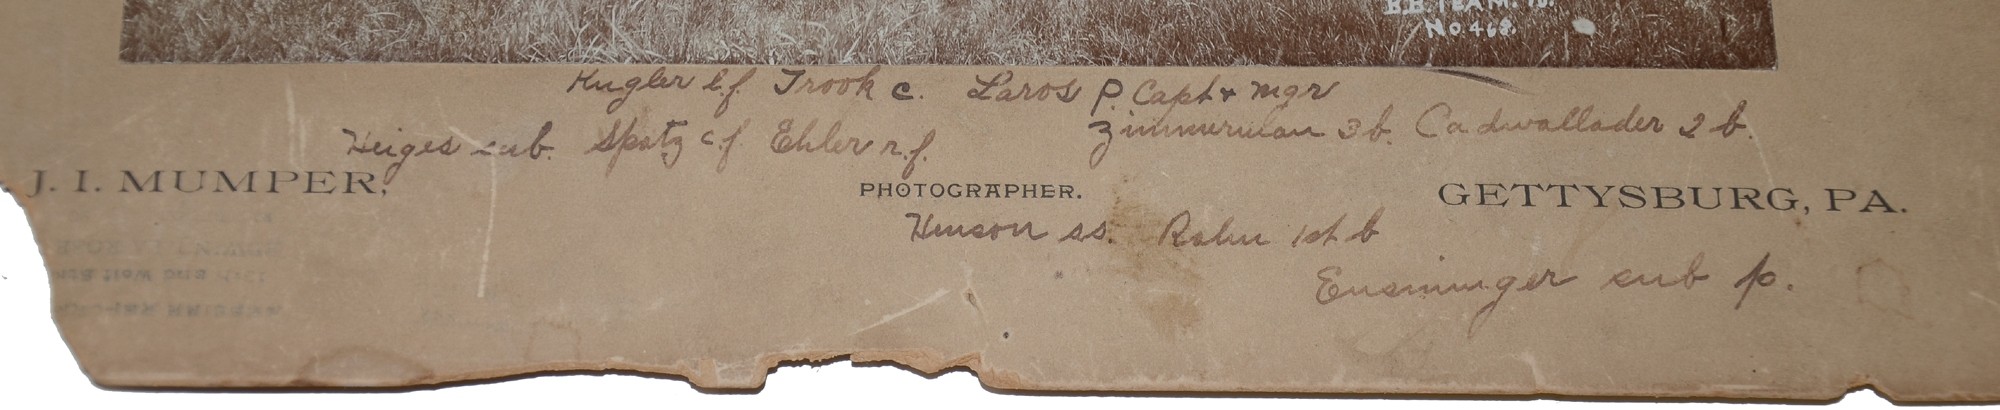 B.B. TEAM.
No. 468.
Hugler l.f. Trook c. Laros P. Capt + mgr
Heiges sub. Spatz c.f. Ehler r.f. Zimmerman 3 b. Cadwallader 2 b.
J. I. MUMPER, PHOTOGRAPHER. GETTYSBURG, PA.
Henson ss. Rahn 1st b
Ensminger sub p.